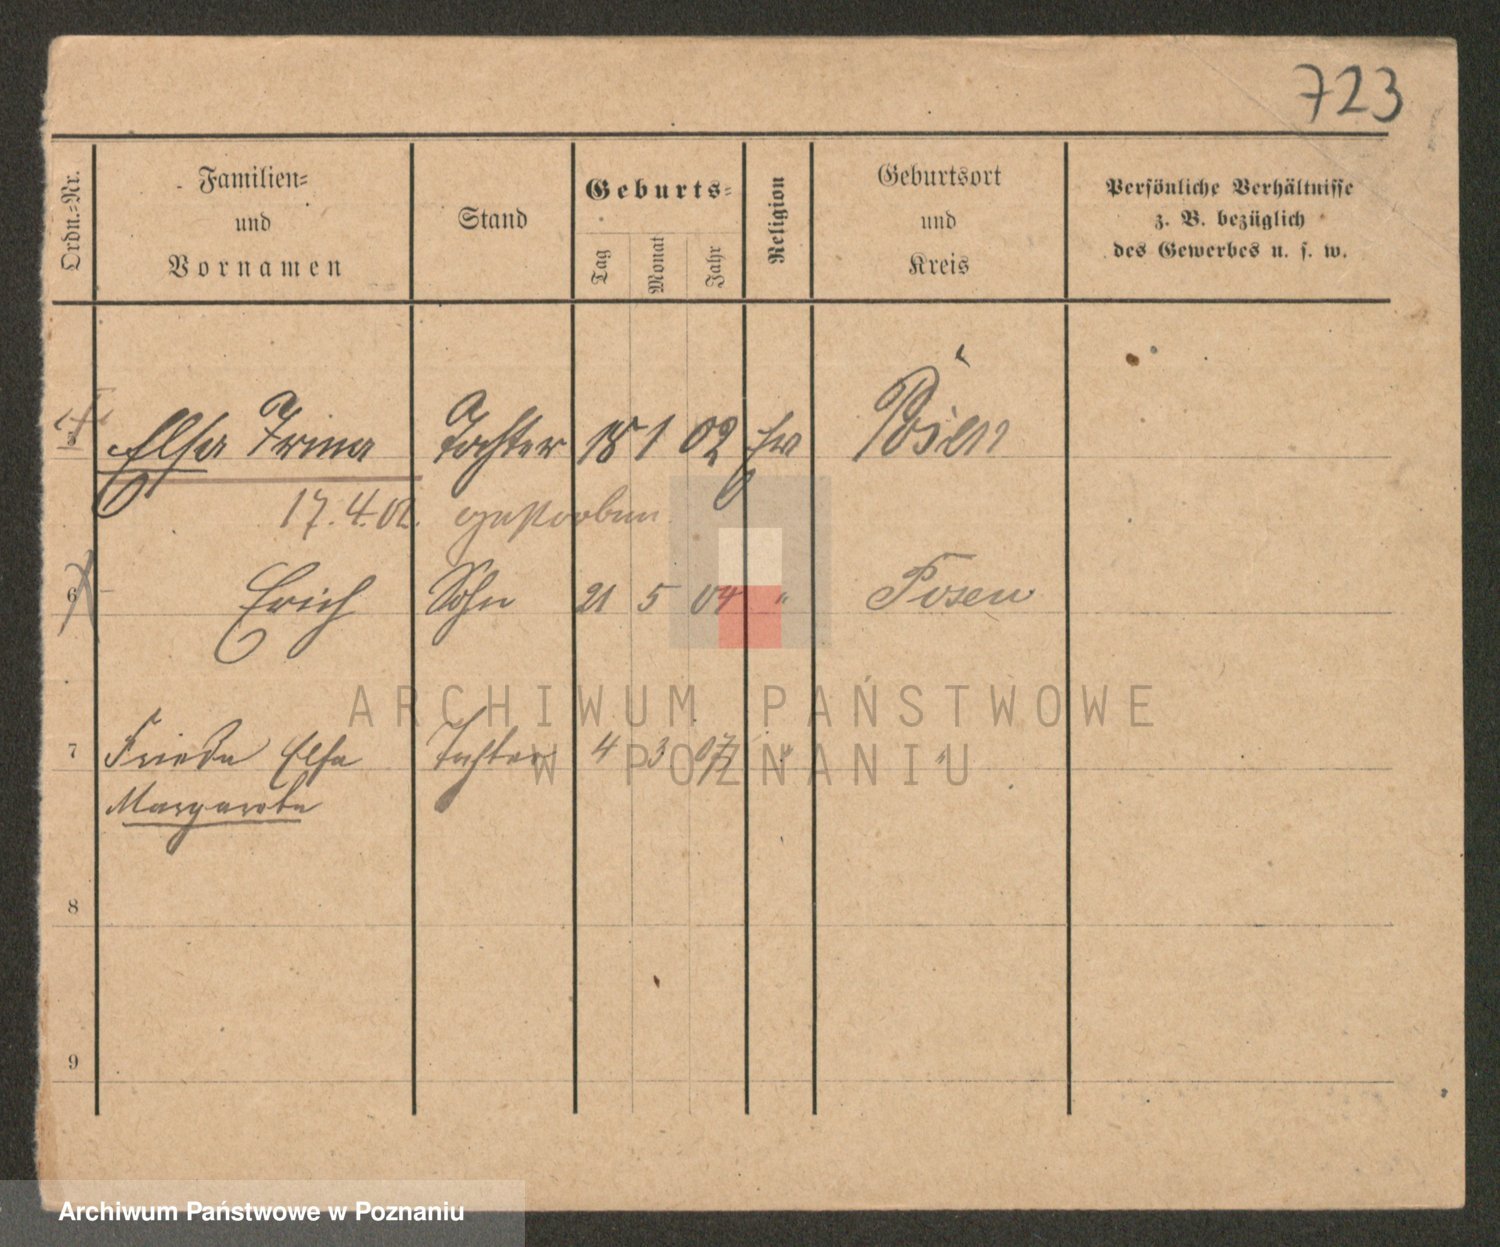 723
Ordn.-Nr.
Familien-
und
Vornamen
Stand
Geburts-
Tag
Monat
Jahr
Religion
Geburtsort
und
Kreis
Persönliche Verhältnisse
z. B. bezüglich
des Gewerbes u. s. w.
Elsa Irma Tochter 18 1 02 Ev Posen
17.4.02. gestorben
6 Erich Sohn 21 5 04 " Posen
7 Frieda Elsa Tochter 4 3 07 " "
Margarete
8
9
ARCHIWUM PAŃSTWOWE
W POZNANIU
Archiwum Państwowe w Poznaniu